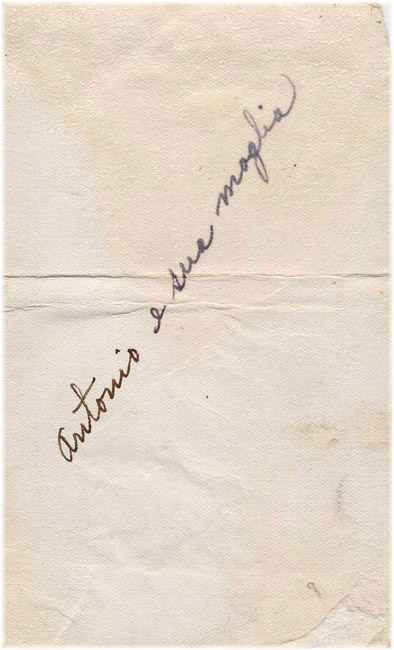 Antonio e sua moglia